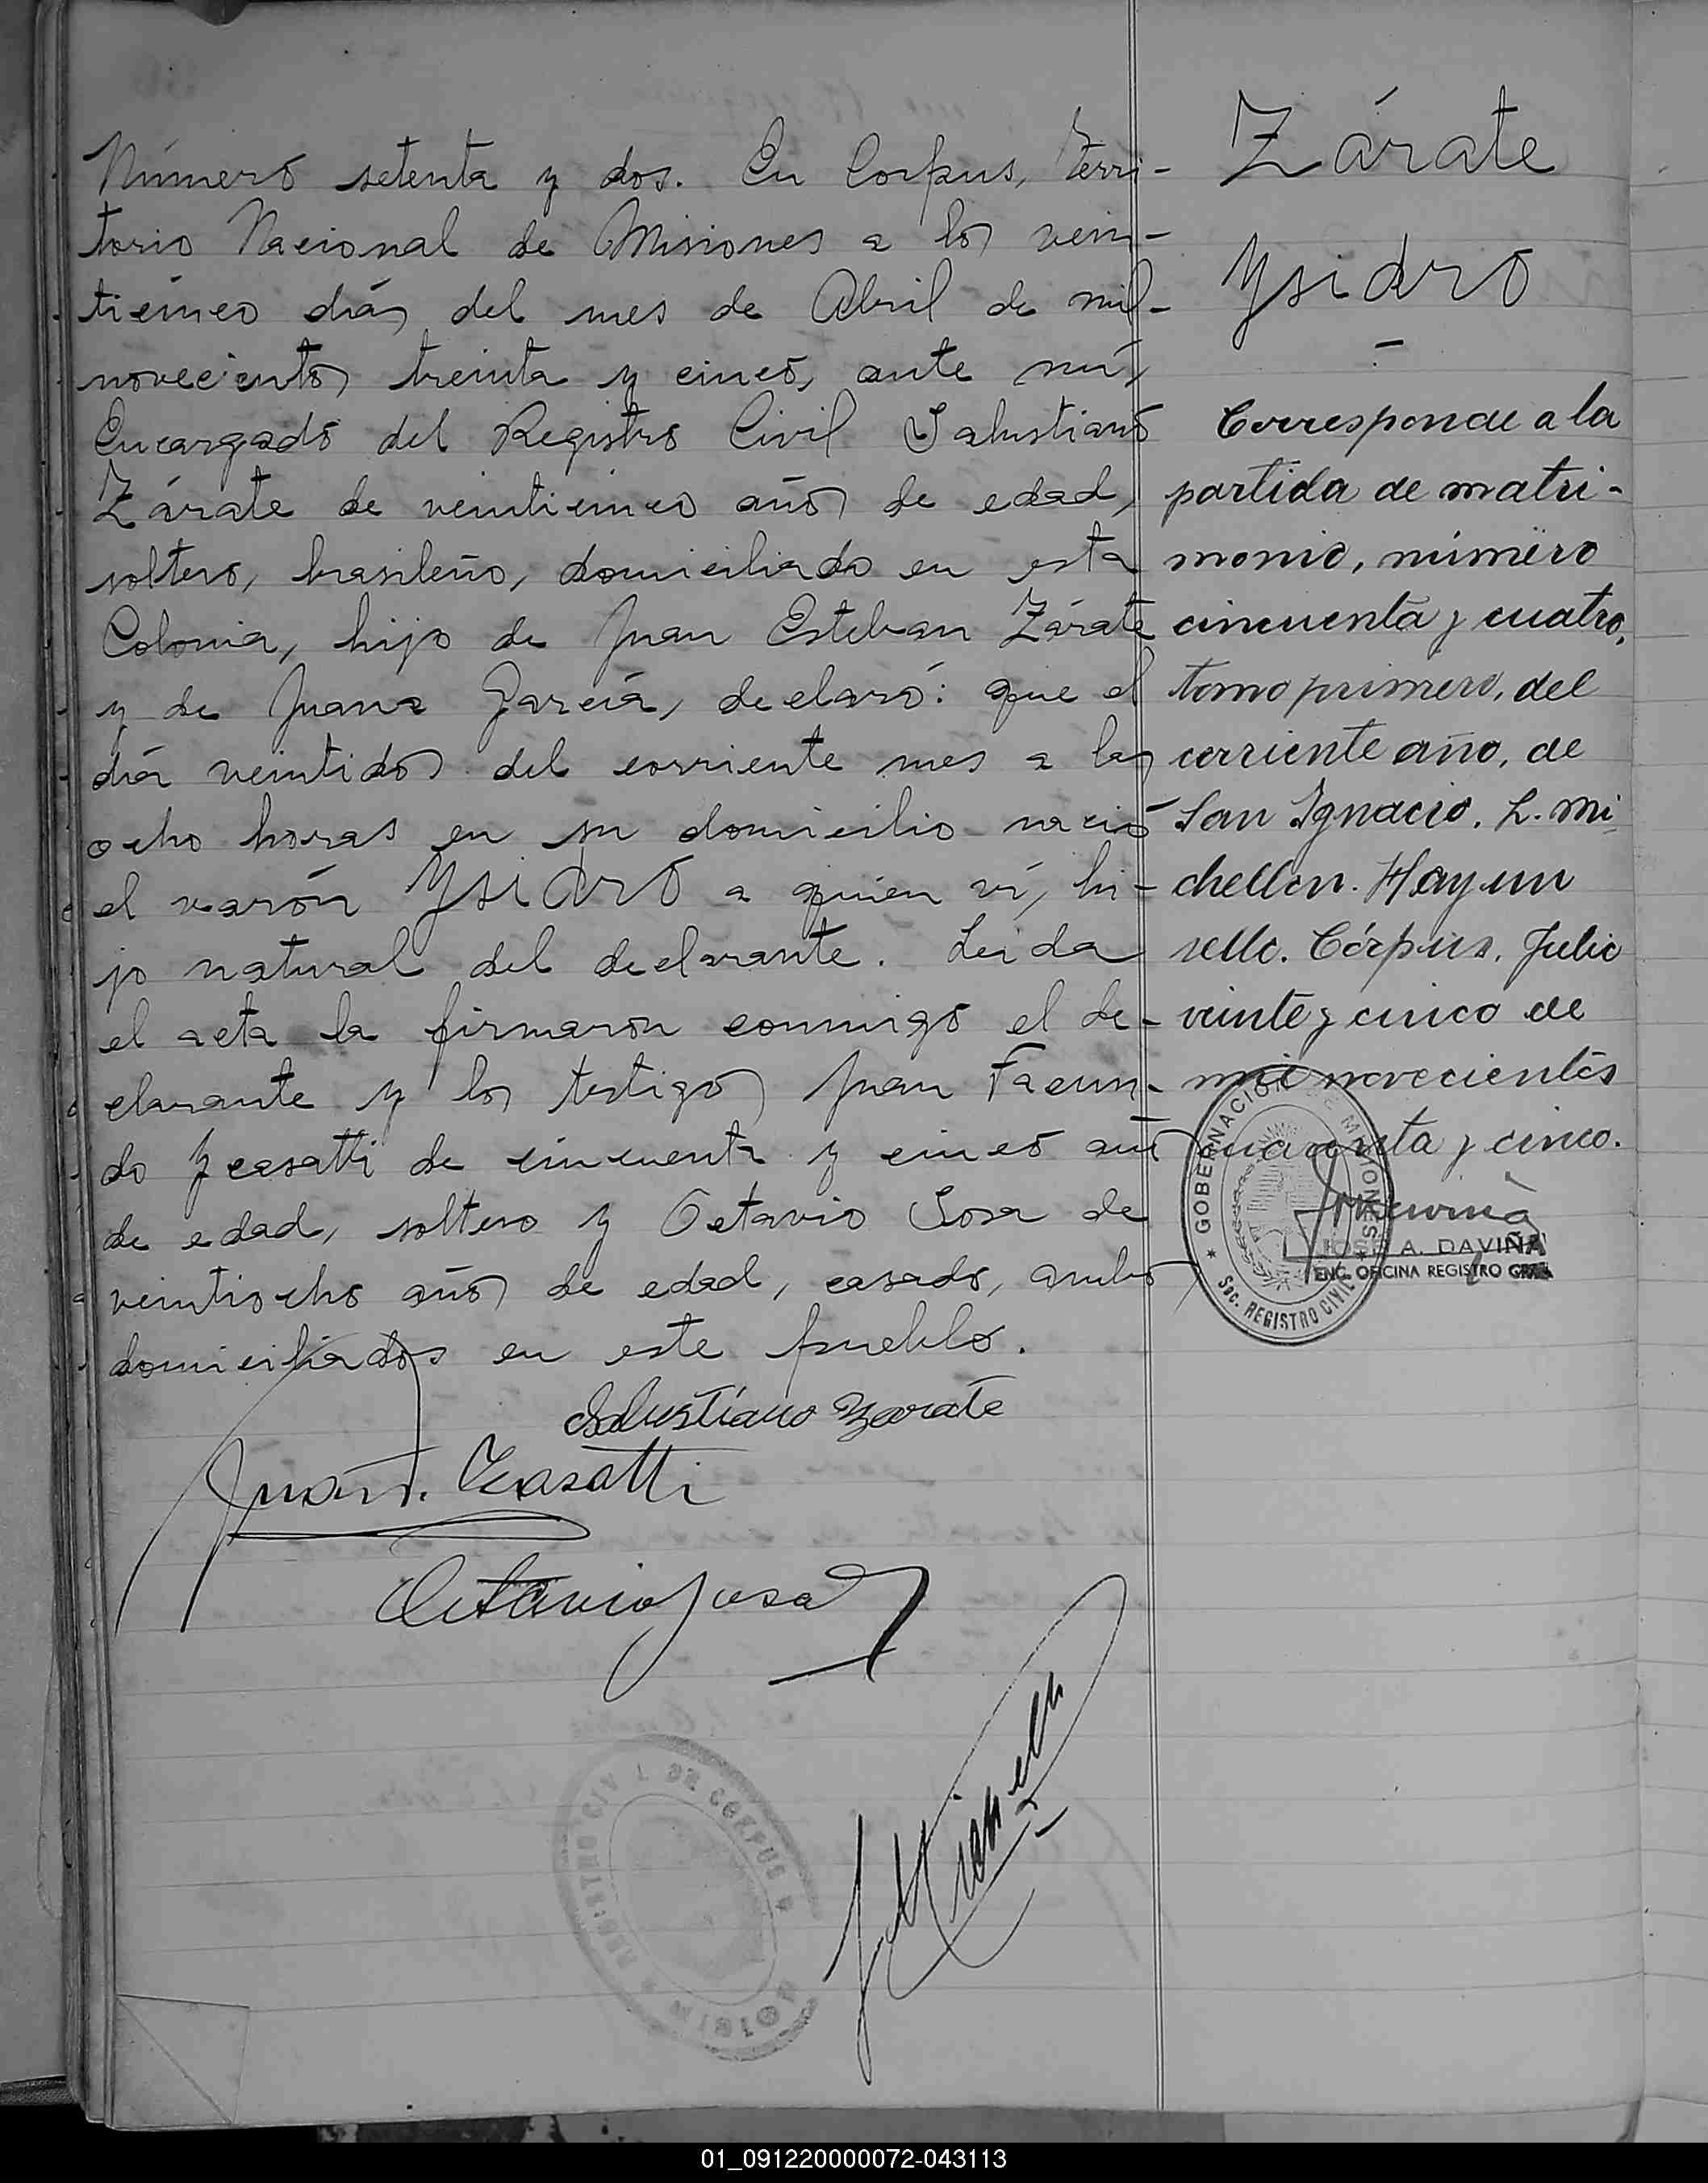 Número setenta y dos. En Corpus, Terri-
torio Nacional de Misiones a los vein-
ticinco días del mes de Abril de mil-
novecientos treinta y cinco, ante mí,
Encargado del Registro Civil Salustiano
Zárate de veinticinco años de edad,
soltero, brasileño, domiciliado en esta
Colonia, hijo de Juan Esteban Zárate
y de Juana García, declaró: que el
día veintidos del corriente mes a las
ocho horas en su domicilio nació
el varón Ysidro a quien ví, hi-
jo natural del declarante. Leida
el acta la firmaron conmigo el de-
clarante y los testigos Juan Facun-
do Zcasatti de cincuenta y cinco años
de edad, soltero y Octavio Sosa de
veintiocho años de edad, casado, ambos
domiciliados en este pueblo.
Salustiano Zarate
Juan F. Zcasatti
Octavio Sosa
REGISTRO CIVIL DE CORPUS
MISIONES
Zárate
Ysidro
-
Corresponde a la
partida de matri-
monio, número
cincuenta y cuatro,
tomo primero, del
corriente año, de
San Ignacio. L. Mi
chellon. Hay un
sello. Córpus, Julio
veinte y cinco de
mil novecientos
cuarenta y cinco.
GOBERNACION DE MISIONES
Sec. REGISTRO CIVIL
JOSE A. DAVIÑA
ENC. OFICINA REGISTRO CIVIL
01_091220000072-043113